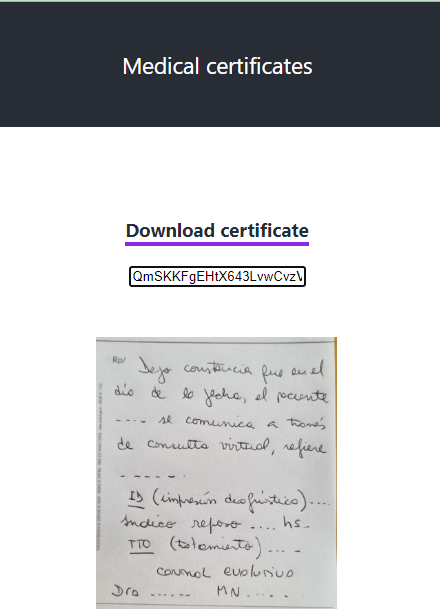 Medical certificates
Download certificate
QmSKKFgEHtX643LvwCvzV
Rp/ Dejo constancia que en el
día de la fecha, el paciente
.... se comunica a través
de consulta virtual, refiere
......
ID (impresión diagnóstico)....
Indico reposo .... hs-
TTO (tratamiento) ....
control evolutivo
Dra ...... MN .....